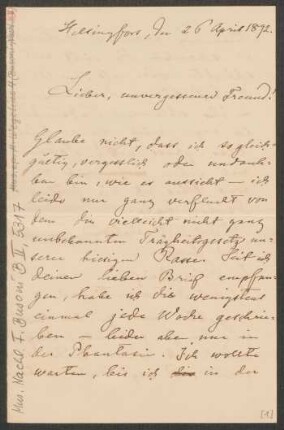 Helsingfors, den 26 April 1892.
Lieber, unvergessener Freund!
Glaube nicht, dass ich so gleich-
gültig, vergesslich oder undank-
bar bin, wie es aussieht – ich
leide nur ganz verfeuert von
dem Dir vielleicht nicht ganz
unbekannten Trägheitsgesetz un-
serer hiesigen Rasse. Seit ich
deinen lieben Brief empfan-
gen, habe ich dir wenigstens
einmal jede Woche geschrie-
ben – leider aber nur in
der Phantasie. Ich wollte
warten, bis ich in der
Mus. Nachl. F. Busoni B II, 5317
[1]